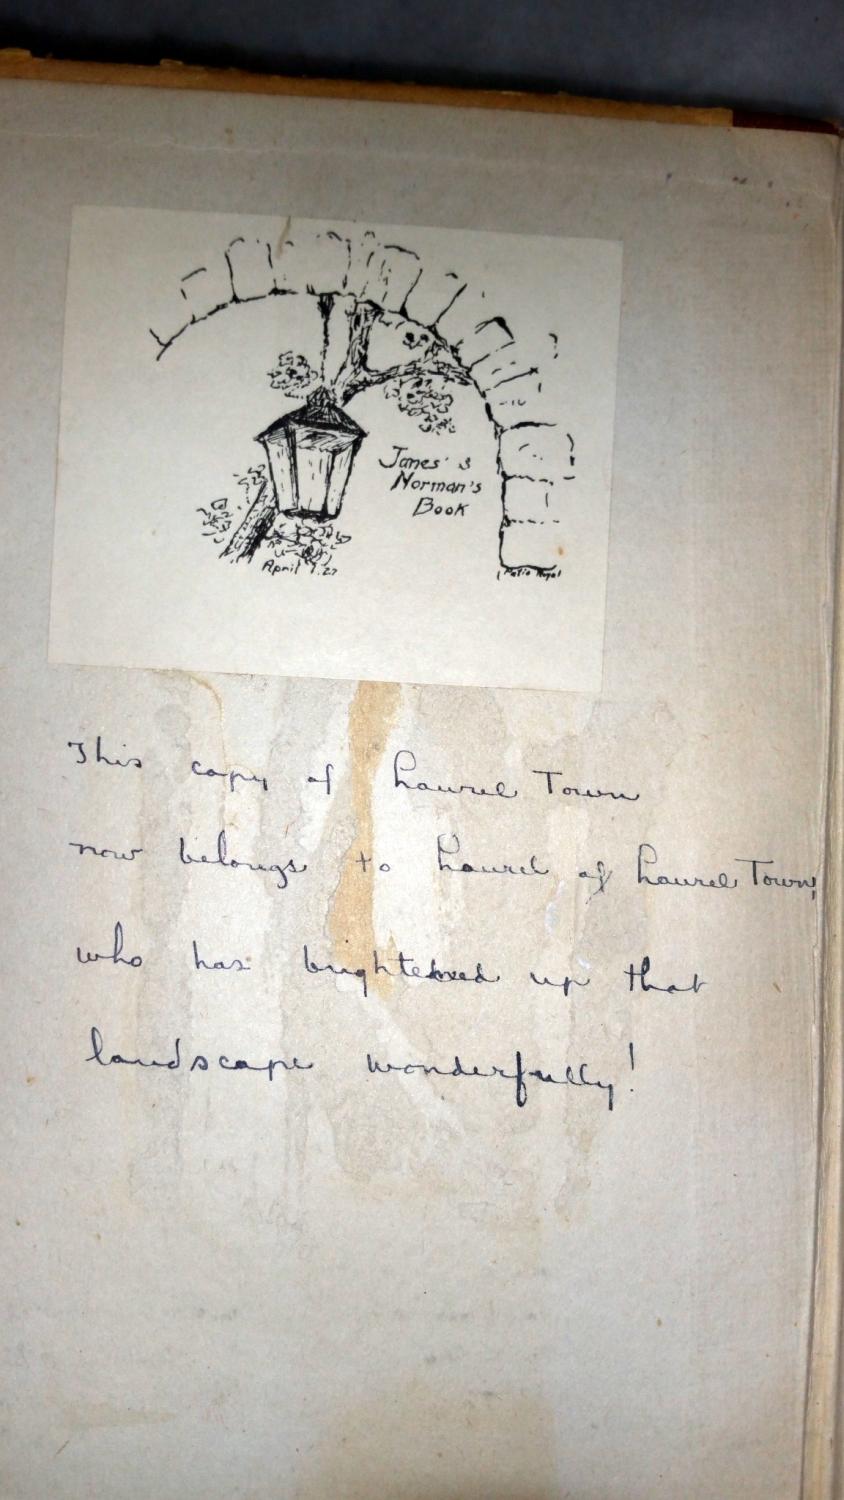 Janes' &
Norman's
Book
April 7. 27
Patio Royal
This copy of Laurel Town
now belongs to Laurel of Laurel Town,
who has brightened up that
landscape wonderfully!